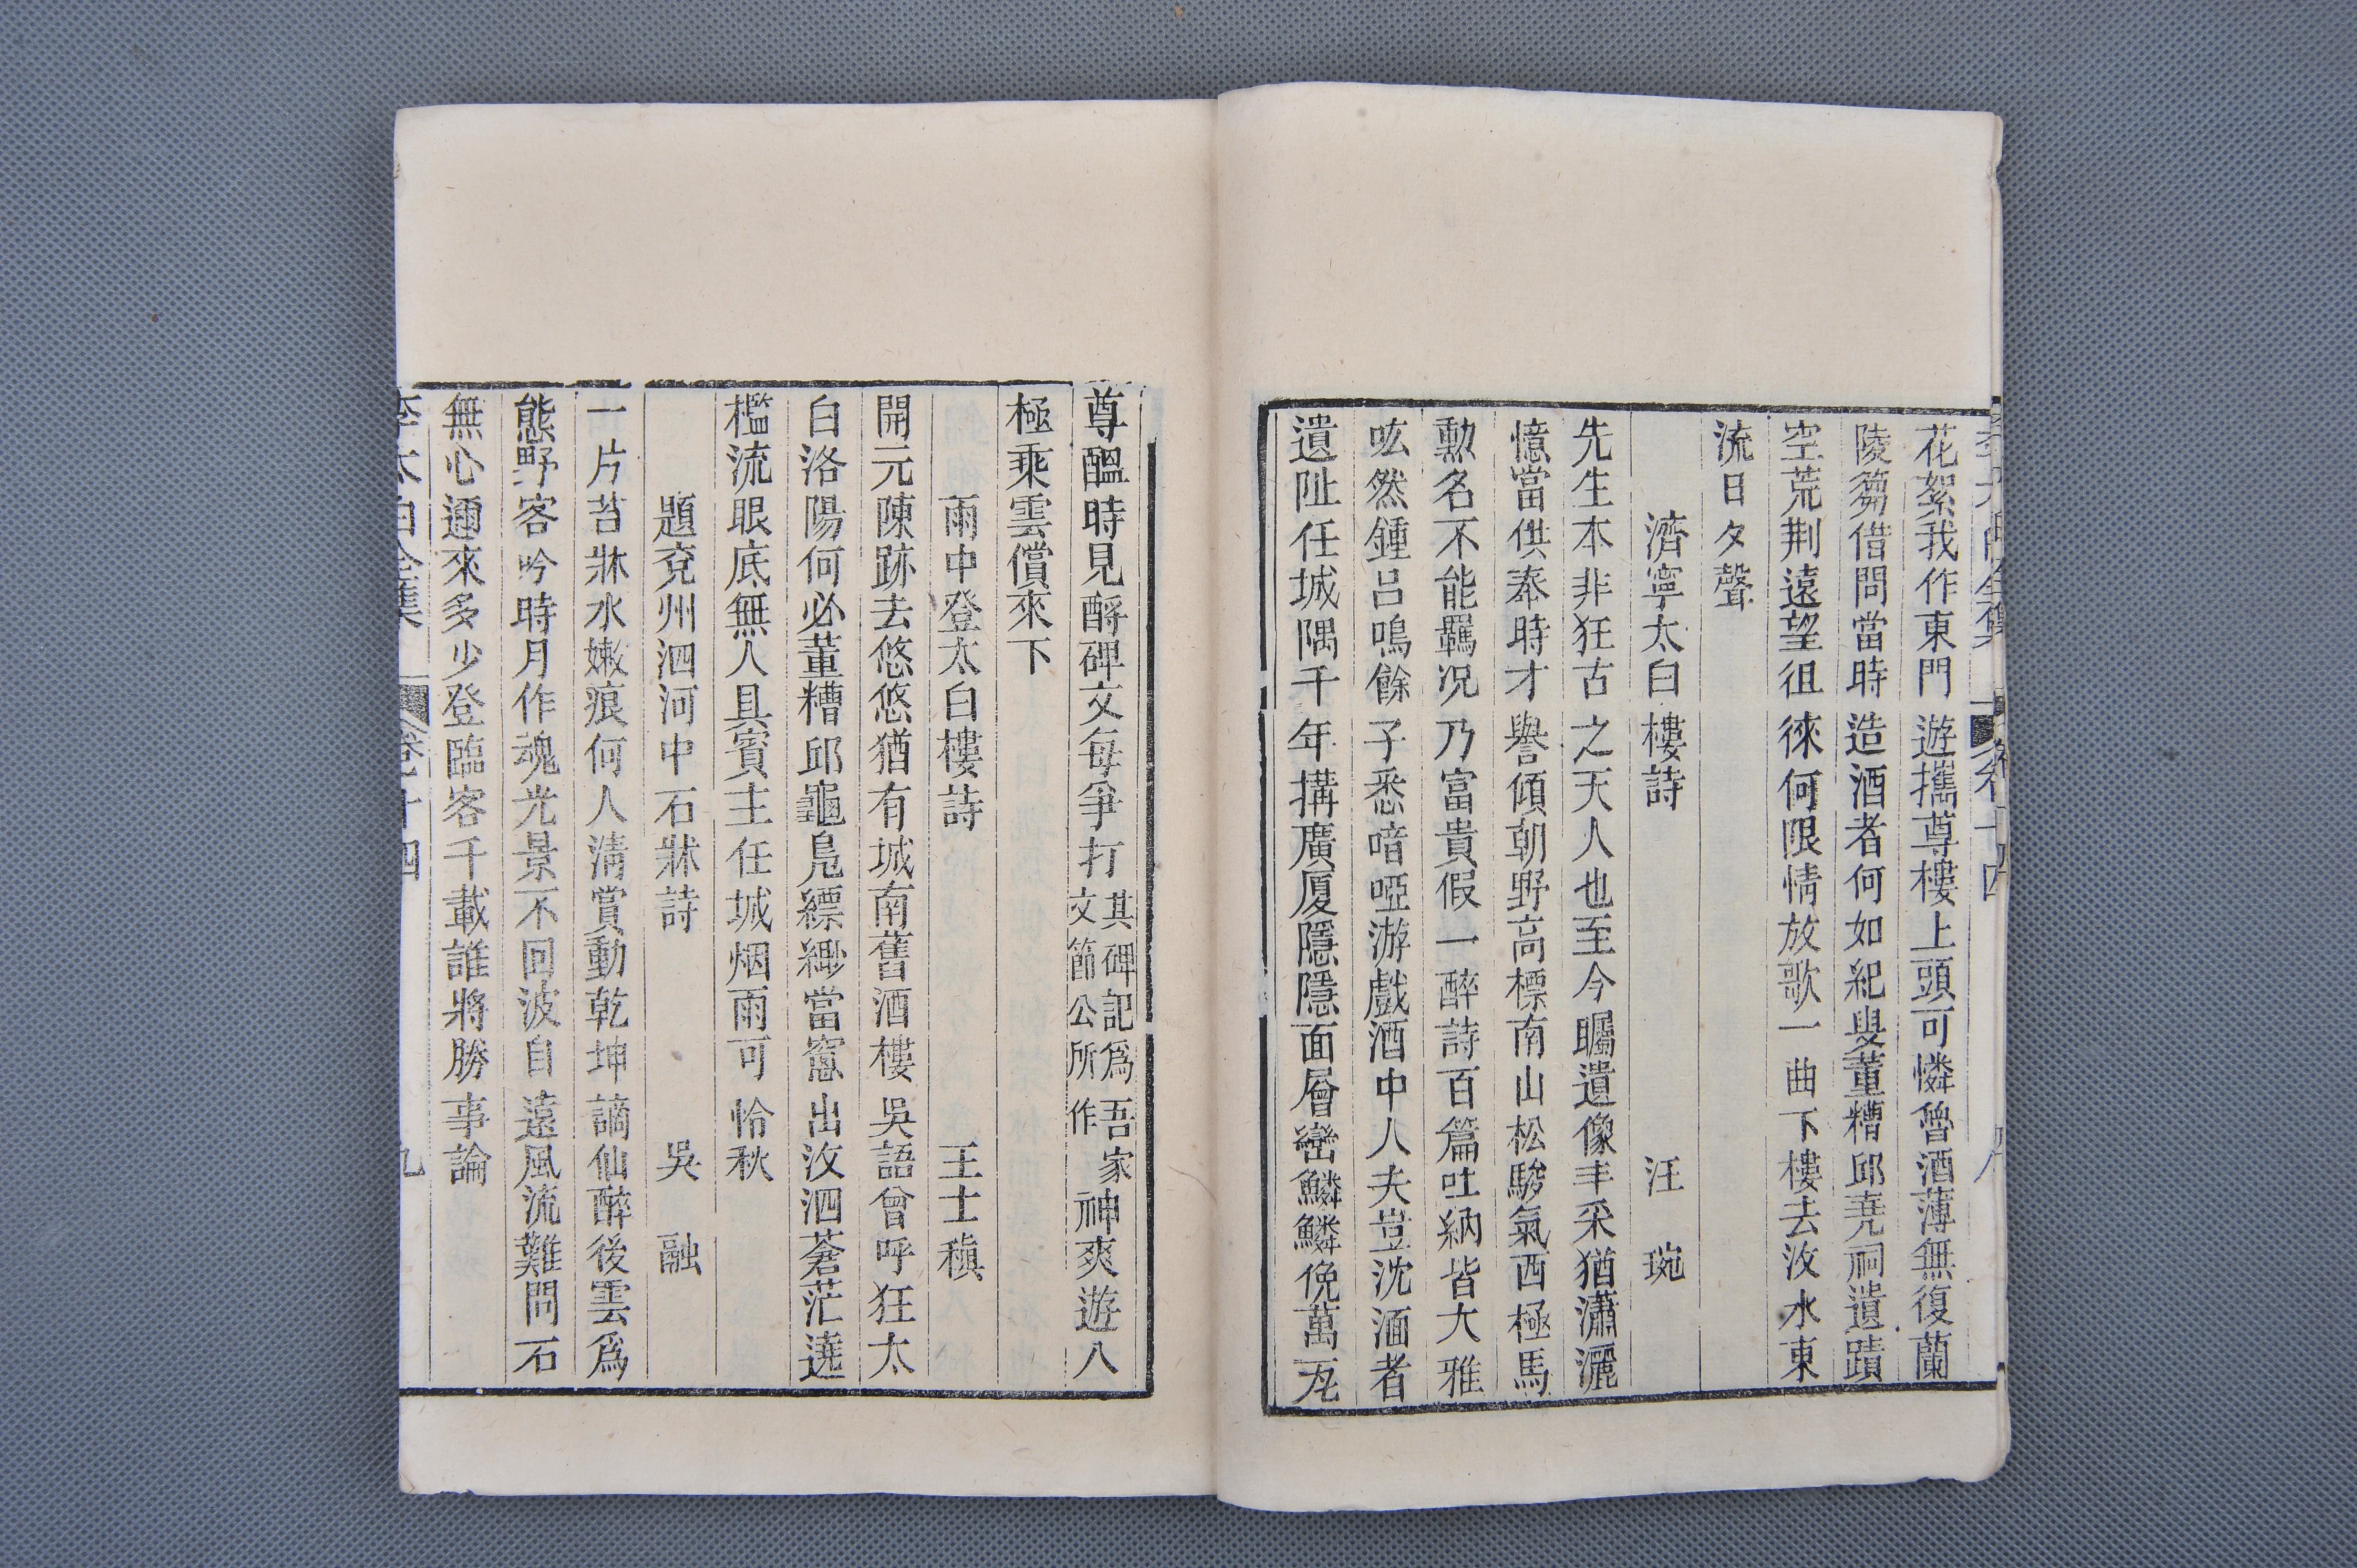 花絮我作東門遊攜尊樓上頭可憐魯酒薄無復蘭
陵蒭借問當時造酒者何如紀叟董糟邱堯祠遺蹟
空荒荆遠望徂徠何限情放歌一曲下樓去汶水東
流日夕聲
濟寧太白樓詩 汪琬
先生本非狂古之天人也至今矚遺像丰采猶瀟灑
憶當供奉時才譽傾朝野高標南山松駿氣西極馬
勲名不能羈况乃富貴假一醉詩百篇吐納皆大雅
呟然鍾呂鳴餘子悉喑啞游戲酒中人夫豈沈湎者
遺阯任城隅千年搆廣厦隱隱面層巒鱗鱗俛萬瓦
尊醞時見酹碑文每爭打其碑記爲吾家文節公所作神爽遊八
極乘雲儻來下
雨中登太白樓詩 王士稹
開元陳跡去悠悠猶有城南舊酒樓吳語曾呼狂太
白洛陽何必董糟邱龜鳧縹緲當窻出汶泗蒼茫遶
檻流眼底無人具賓主任城烟雨可怜秋
題兗州泗河中石牀詩 吳融
一片苔牀水嫰痕何人清賞動乾坤謫仙醉後雲爲
態野客吟時月作魂光景不回波自遠風流難問石
無心邇來多少登臨客千載誰將勝事論
李太白全集 卷十四 九